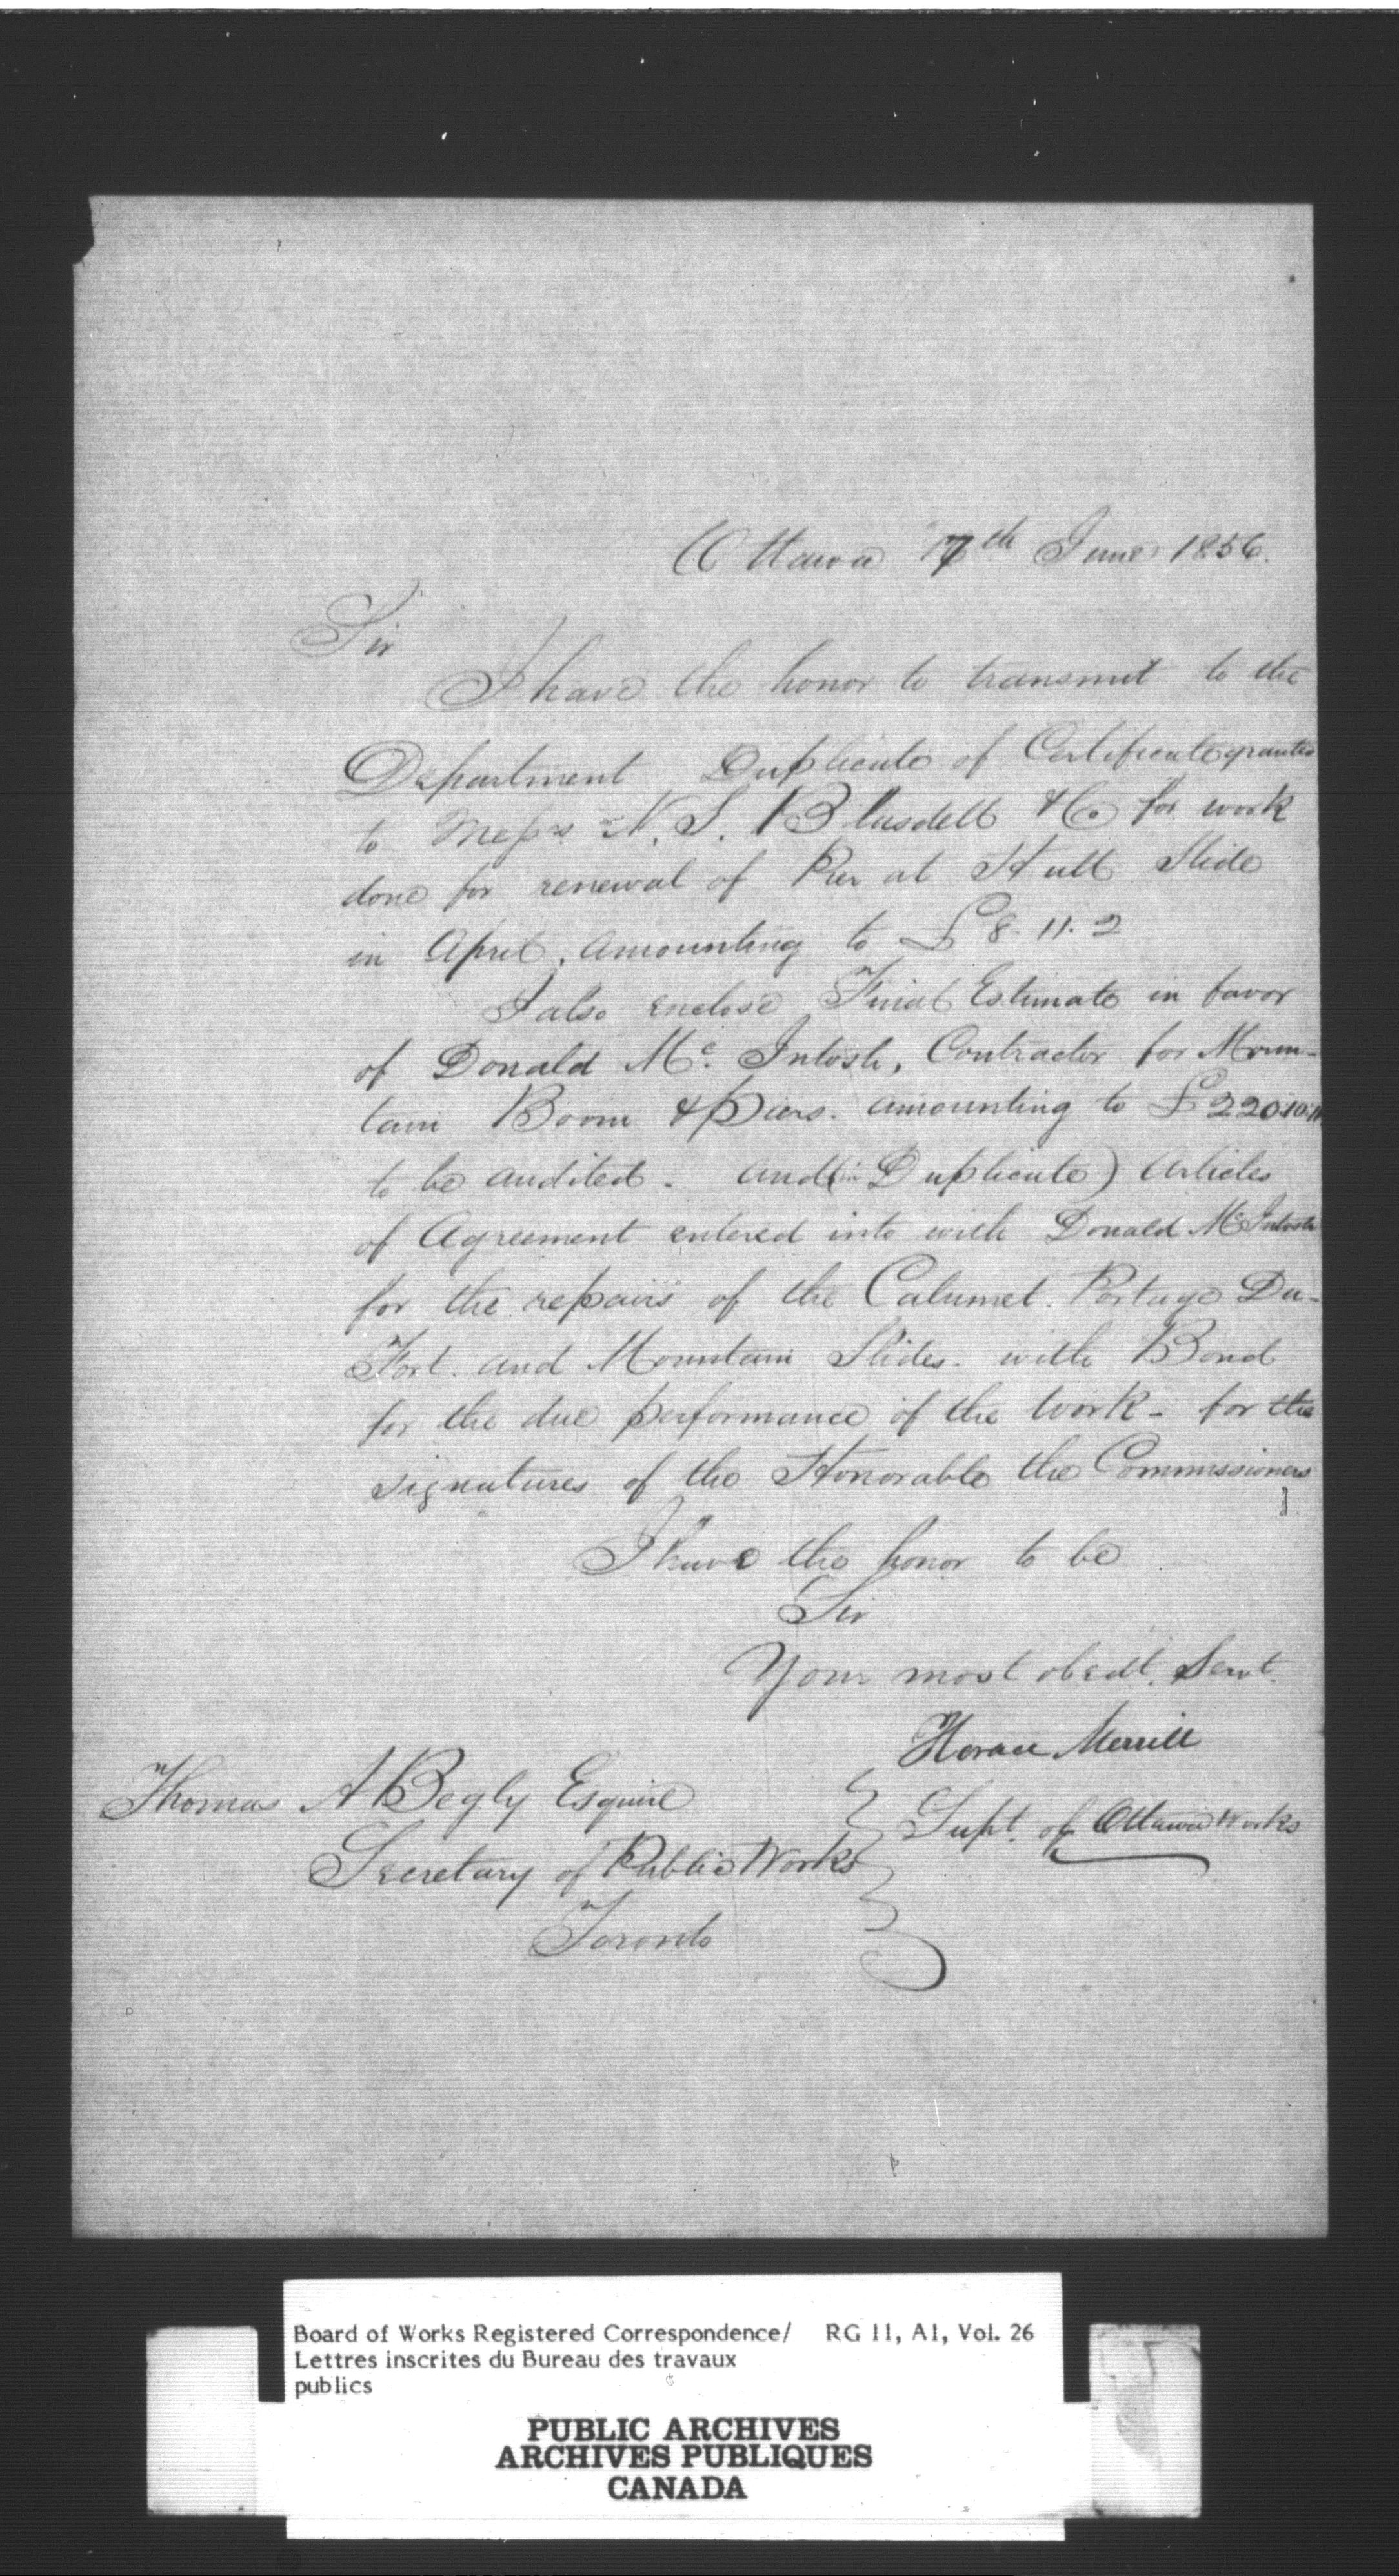 Ottawa 7th June 1856.
Sir
I have the honor to transmit to the
Department Duplicate of Certificate granted
to Messrs N. S. Blasdell & Co for work
done for renewal of Pier at Hull Slide
in April, amounting to £8. 11. 2
I also enclose Final Estimate in favor
of Donald Mc. Intosh, Contractor for Moun-
tain Boom & Piers. amounting to £220.10.11
to be audited. and (in Duplicate) Articles
of Agreement entered into with Donald McIntosh
for the repairs of the Calumet. Portage Du-
Fort. and Mountain Slides. with Bond
for the due performance of the work - for the
signatures of the Honorable the Commissioners
I have the honor to be
Sir
Your most obedt. Servt.
Horace Merrill
Supt. of Ottawa Works
Thomas A Begly Esquire
Secretary of Public Works
Toronto
Board of Works Registered Correspondence/ RG 11, A1, Vol. 26
Lettres inscrites du Bureau des travaux
publics
PUBLIC ARCHIVES
ARCHIVES PUBLIQUES
CANADA